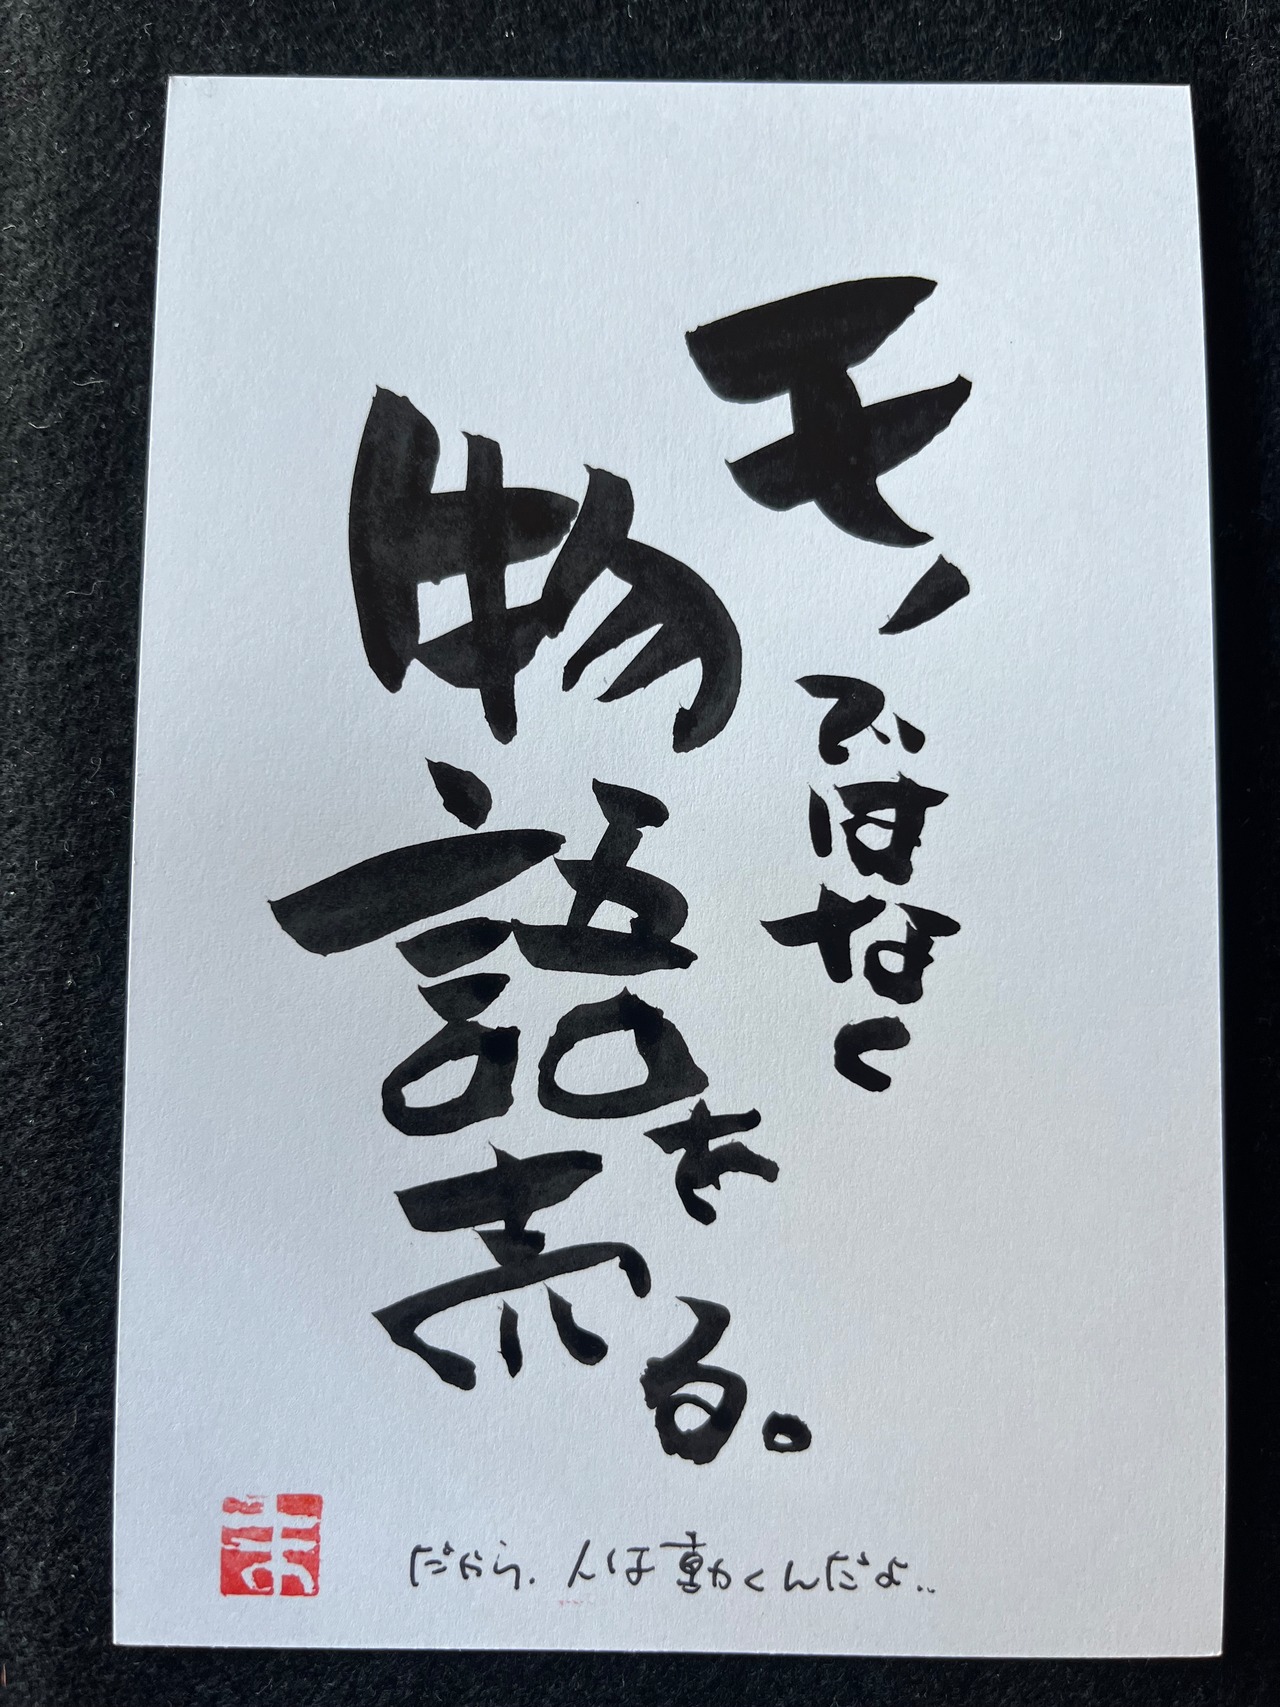 モノではなく
物語を売る。
だから、人は動くんだよ..